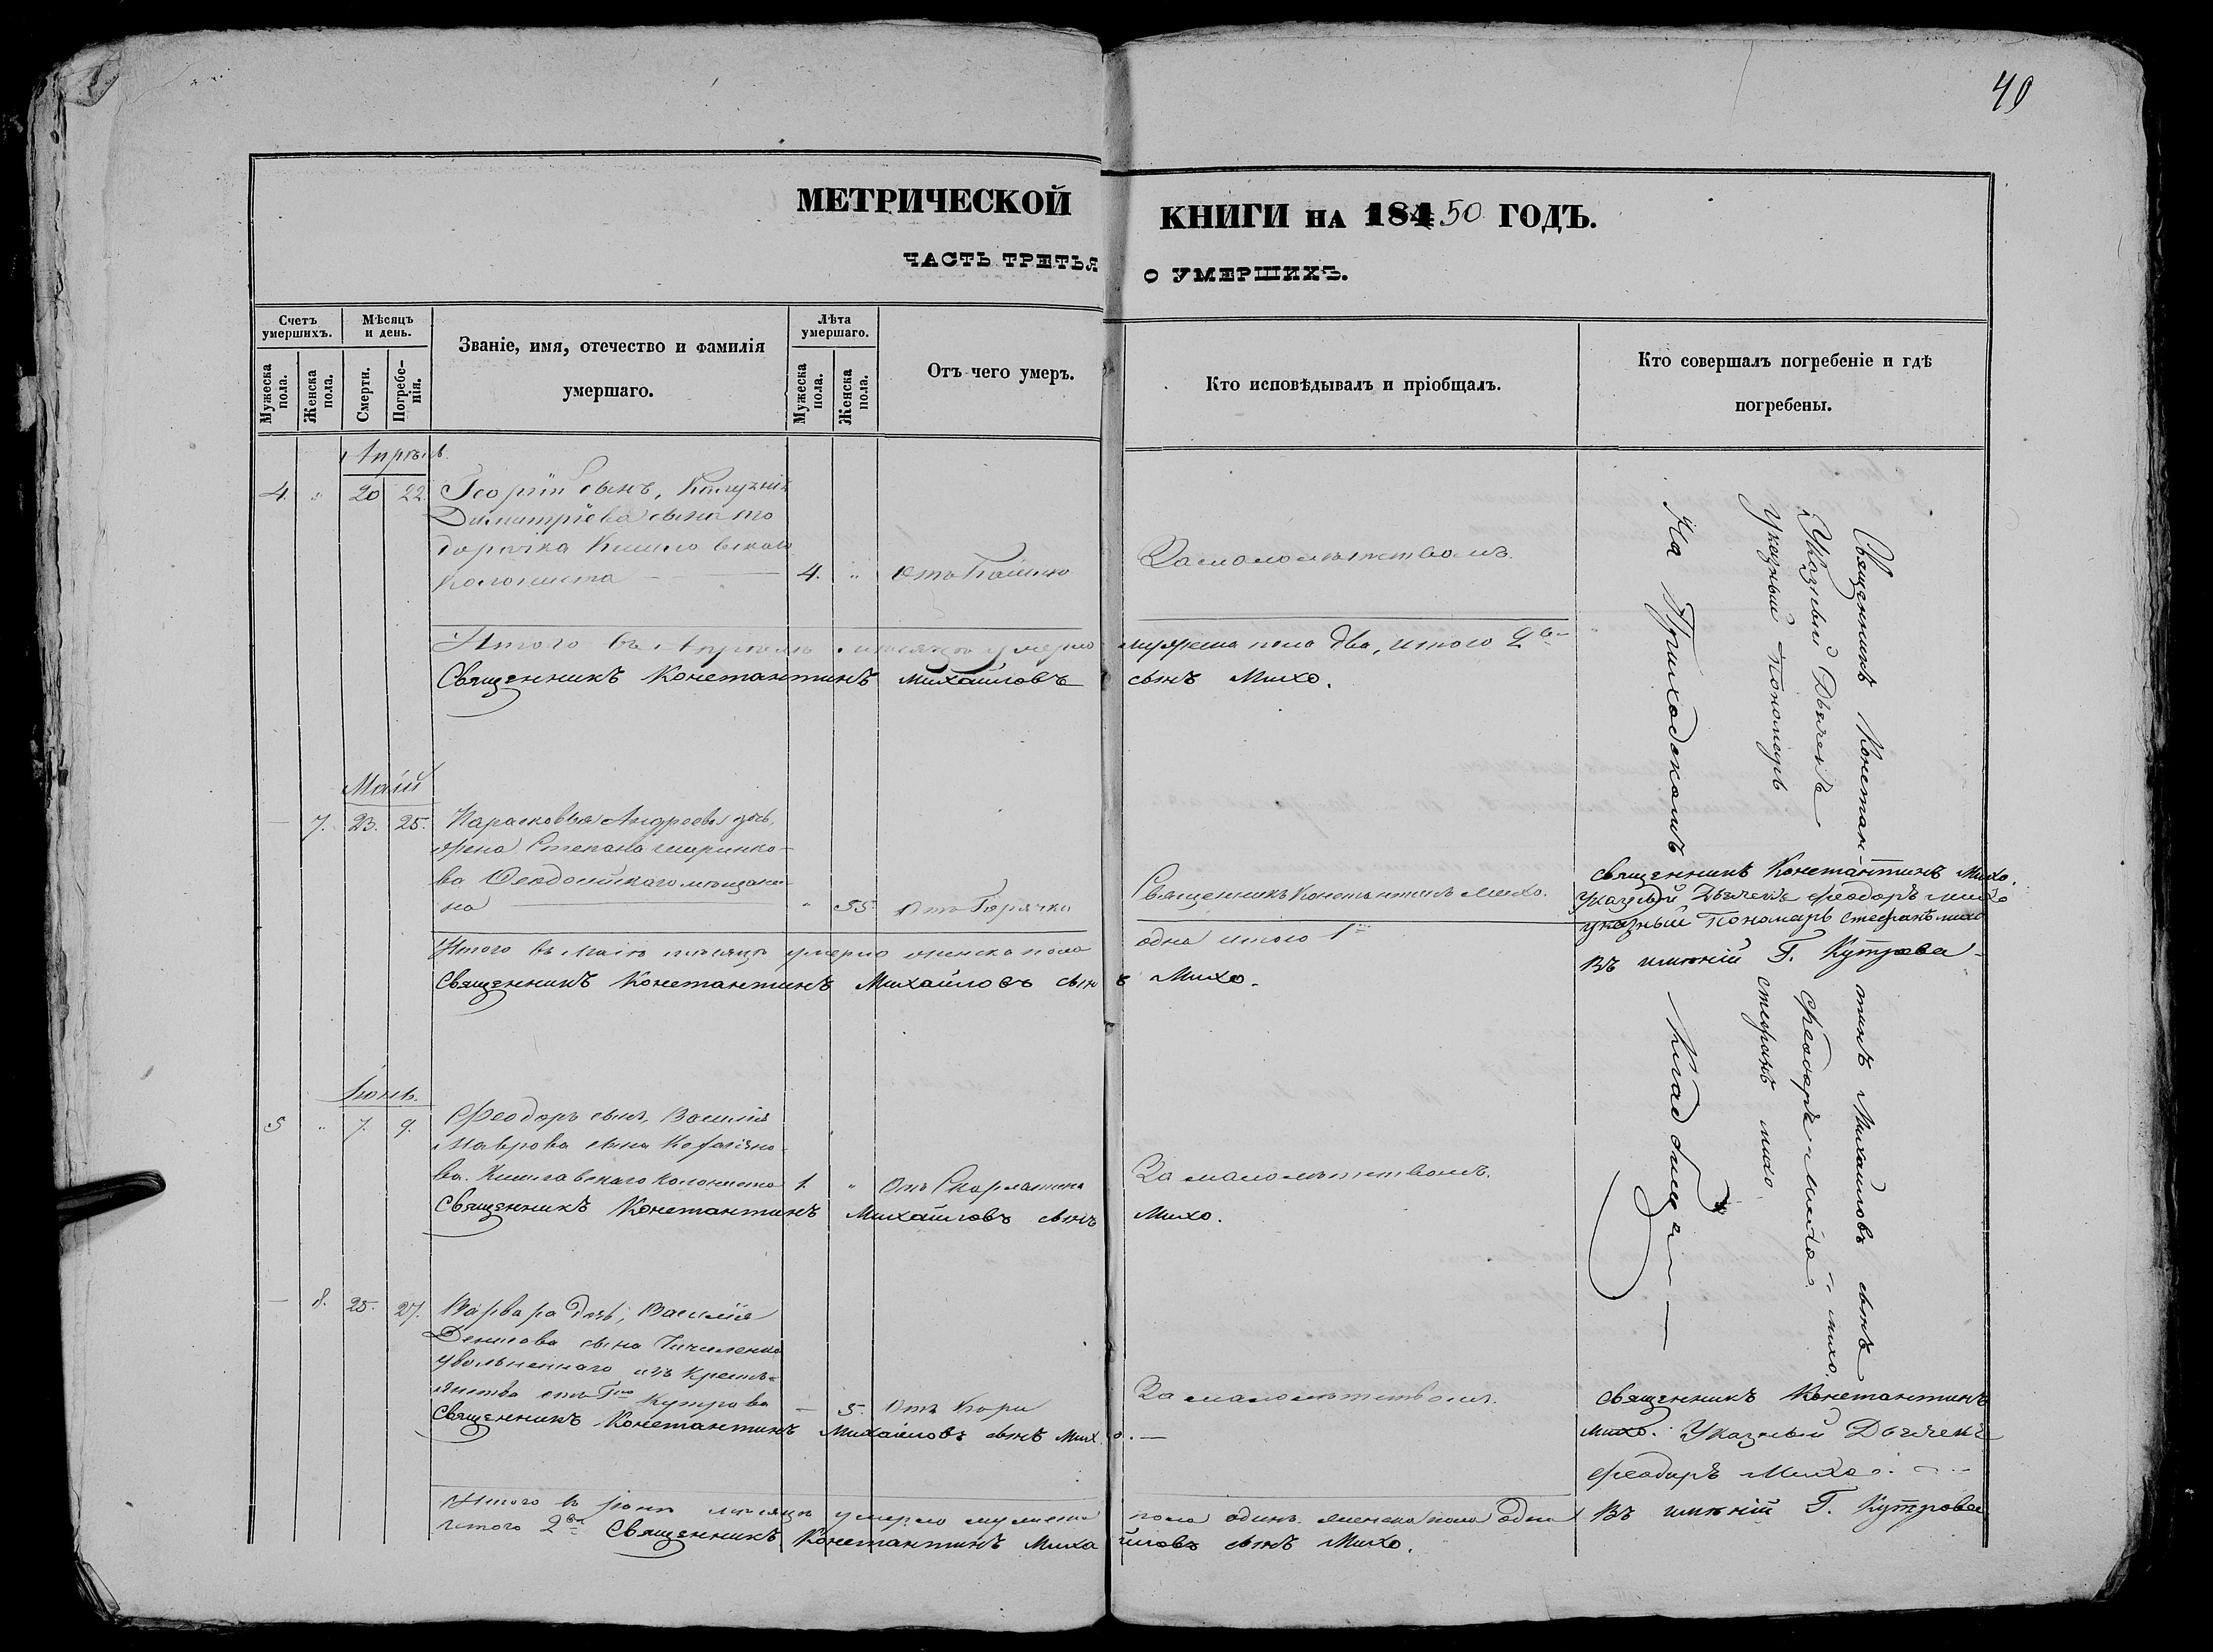 40
МЕТРИЧЕСКОЙ КНИГИ НА 184 50 ГОДЪ.
ЧАСТЬ ТРЕТЬЯ О УМЕРШИХЪ.
Счетъ умершихъ.
Мужеска пола.
Женска пола.
Мѣсяцъ и день.
Смерти.
Погребенія.
Званіе, имя, отечество и фамилія
умершаго.
Лѣта умершаго.
Мужеска пола.
Женска пола.
Отъ чего умеръ.
Кто исповѣдывалъ и пріобщалъ.
Кто совершалъ погребеніе и гдѣ
погребены.
Апрѣль
4. " 20 22. Георгій сынъ,
Димитріева сына То
дорачка Кишлавскаго
Колониста 4. " Отъ
За малолѣтствомъ.
Итого въ Апрѣлѣ мѣсяцѣ умерло мужеска пола два, итого 2
Священникъ Константинъ Михайловъ сынъ Михо.
Маій
— 7. 23. 25. Парасковья Андреева дочь,
жена Степана
ва Феодосійскаго мѣщани
на " 55. Отъ Горячки
Священникъ Константинъ Михо.
Священникъ Константинъ Михо.
Указный Дьячекъ Феодоръ Михо
указный Пономарь Стефанъ Михо
Въ имѣніи Г. Кутрова
Итого въ Маіѣ мѣсяцѣ умерло женска пола одна итого 1
Священникъ Константинъ Михайловъ сынъ Михо.
Іюнь.
5 " 7. 9. Феодоръ сынъ, Василія
Маврова сына
ва. Кишлавскаго Колониста 1. " Отъ Скарлатина
За малолѣтствомъ.
Священникъ Константинъ Михайловъ сынъ Михо.
— 8. 25. 27. Варвара дочь, Василія
Денисова сына
увольненнаго изъ Крестьянства
отъ Гна Кутрова — 5. Отъ Кори
За малолѣтствомъ.
Священникъ Константинъ Михайловъ сынъ Михо. —
Священникъ Константинъ
Михо. Указный Дьячекъ
Феодоръ Михо.
Въ имѣніи Г. Кутрова
Итого въ Іюнѣ мѣсяцѣ умерло мужеска пола одинъ. женска пола одна
Итого 2 Священникъ Константинъ Михайловъ сынъ Михо.
Священникъ Константинъ Михайловъ сынъ Михо.
Указный Дьячекъ Феодоръ Михо
Указный Пономарь Стефанъ Михо
На Приходскомъ Кладбищѣ —